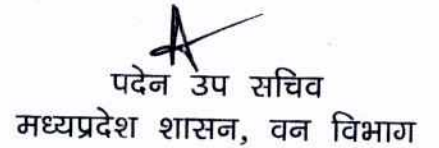 पदेन उप सचिव
मध्यप्रदेश शासन, वन विभाग